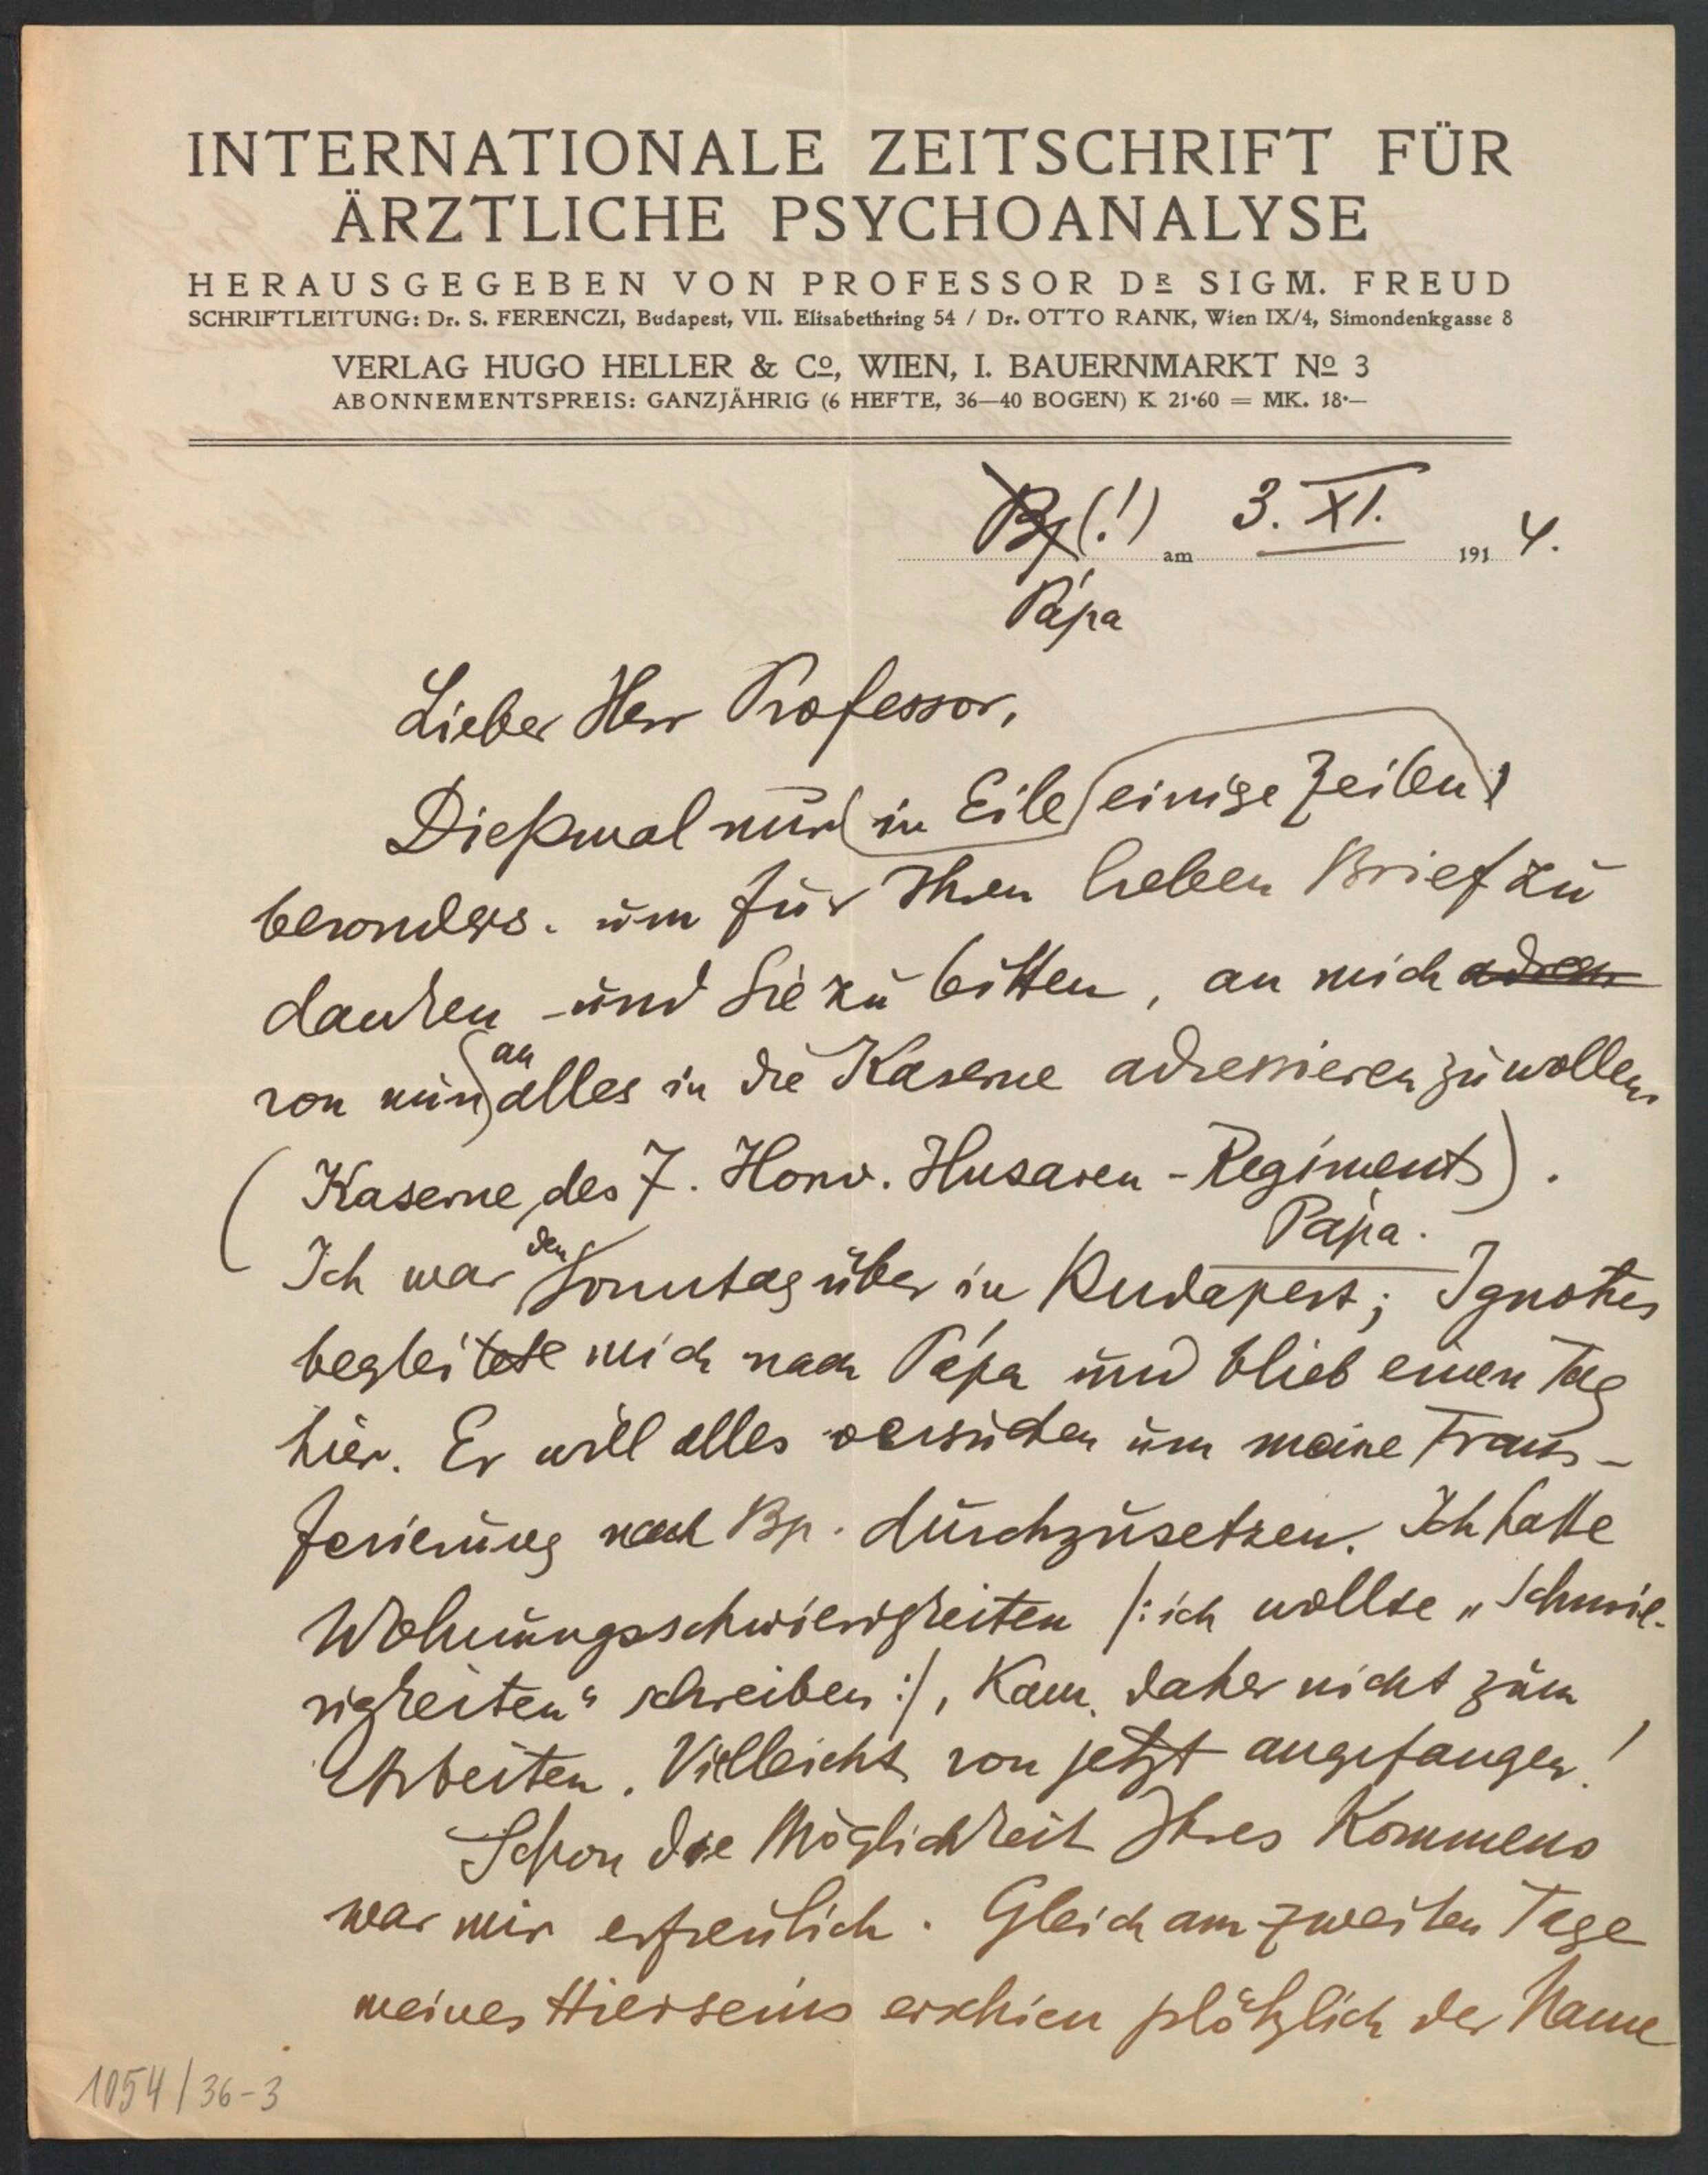 INTERNATIONALE ZEITSCHRIFT FÜR
ÄRZTLICHE PSYCHOANALYSE
HERAUSGEGEBEN VON PROFESSOR DR SIGM. FREUD
SCHRIFTLEITUNG: Dr. S. FERENCZI, Budapest, VII. Elisabethring 54 / Dr. OTTO RANK, Wien IX/4, Simondenkgasse 8
VERLAG HUGO HELLER & Co, WIEN, I. BAUERNMARKT No 3
ABONNEMENTSPREIS: GANZJÄHRIG (6 HEFTE, 36—40 BOGEN) K 21·60 = MK. 18·—
Bp (!) am 3. XI. 1914.
Pápa
Lieber Herr Professor,
Dießmal nur in Eile einige Zeilen,
besonders um für Ihren lieben Brief zu
danken und Sie zu bitten, an mich adres
von nun an alles in die Kaserne adressieren zu wollen
(Kaserne des 7. Honv. Husaren-Regiments).
Pápa.
Ich war den Sonntag über in Budapest; Ignotus
begleitete mich nach Pápa und blieb einen Tag
hier. Er will alles versuchen um meine Trans-
ferierung nach Bp. durchzusetzen. Ich hatte
Wohnungsschwierigkeiten /: ich wollte „Schmie-
rigkeiten“ schreiben :/, kam daher nicht zum
Arbeiten. Vielleicht von jetzt angefangen!
Schon die Möglichkeit Ihres Kommens
war mir erfreulich. Gleich am zweiten Tage
meines Hierseins erschien plötzlich der Name
1054/36-3